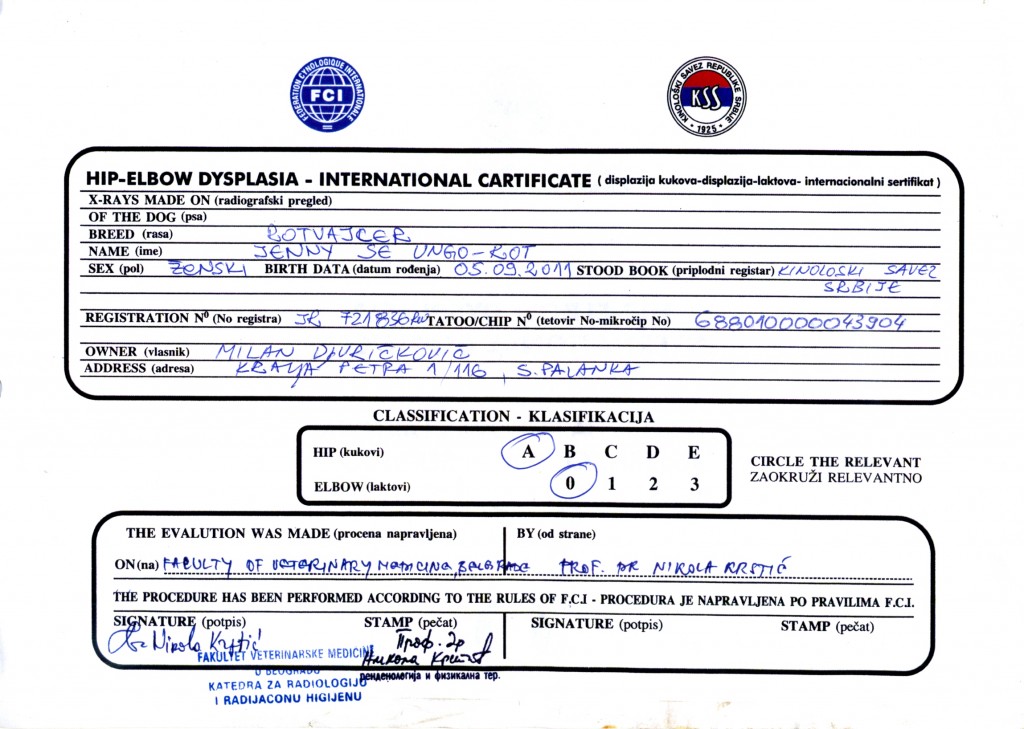 FEDERATION CYNOLOGIQUE INTERNATIONALE
FCI
KINOLOŠKI SAVEZ REPUBLIKE SRBIJE
KSS
• 1925 •
HIP-ELBOW DYSPLASIA - INTERNATIONAL CARTIFICATE ( displazija kukova-displazija-laktova- internacionalni sertifikat )
X-RAYS MADE ON (radiografski pregled)
OF THE DOG (psa)
BREED (rasa) ROTVAJCER
NAME (ime) JENNY SE UNGO-ROT
SEX (pol) ŽENSKI BIRTH DATA (datum rođenja) 05.09.2011 STOOD BOOK (priplodni registar) KINOLOSKI SAVEZ
SRBIJE
REGISTRATION Nº (No registra) JR 721836 TATOO/CHIP Nº (tetovir No-mikročip No) 688010000043904
OWNER (vlasnik) MILAN
ADDRESS (adresa) KRALJA PETRA 1/116, S.PALANKA
CLASSIFICATION - KLASIFIKACIJA
HIP (kukovi) A B C D E
ELBOW (laktovi) 0 1 2 3
CIRCLE THE RELEVANT
ZAOKRUŽI RELEVANTNO
THE EVALUTION WAS MADE (procena napravljena) BY (od strane)
ON (na) FACULTY OF VETERINARY MEDICINE, BELGRADE PROF. DR NIKOLA KRSTIĆ
THE PROCEDURE HAS BEEN PERFORMED ACCORDING TO THE RULES OF F.C.I - PROCEDURA JE NAPRAVLJENA PO PRAVILIMA F.C.I.
SIGNATURE (potpis) STAMP (pečat) SIGNATURE (potpis) STAMP (pečat)
Nikola Krstić Проф. др
Никола Крстић
FAKULTET VETERINARSKE MEDICINE
U BEOGRADU
ренденологија и физикална тер.
KATEDRA ZA RADIOLOGIJU
I RADIJACONU HIGIJENU